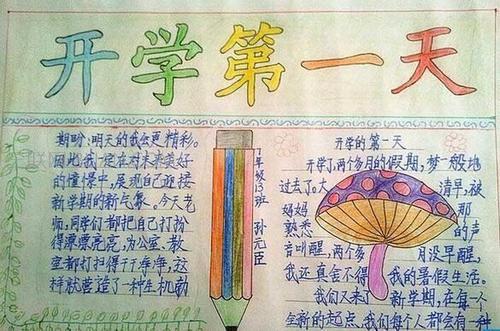 开学第一天
期盼:明天的我会更精彩。
因此,我一定在对未来美好
的憧憬中,展现自己迎接
新学期的新气象。今天老
师,同学们都把自己打扮
得漂漂亮亮,为公室、教
室都打扫得干干净净,这
样就营造了一种生机勃
年级13班 孙元臣
开学的第一天
开学了,两个多月的假期,梦一般地
过去了。大 清早,被
妈妈 那
熟悉 的声
音叫醒,两个多 月没早醒,
我还真舍不得 我的暑假生活。
我们又来了 新学期,在每个
全新的起点、我们每个人都会有一种